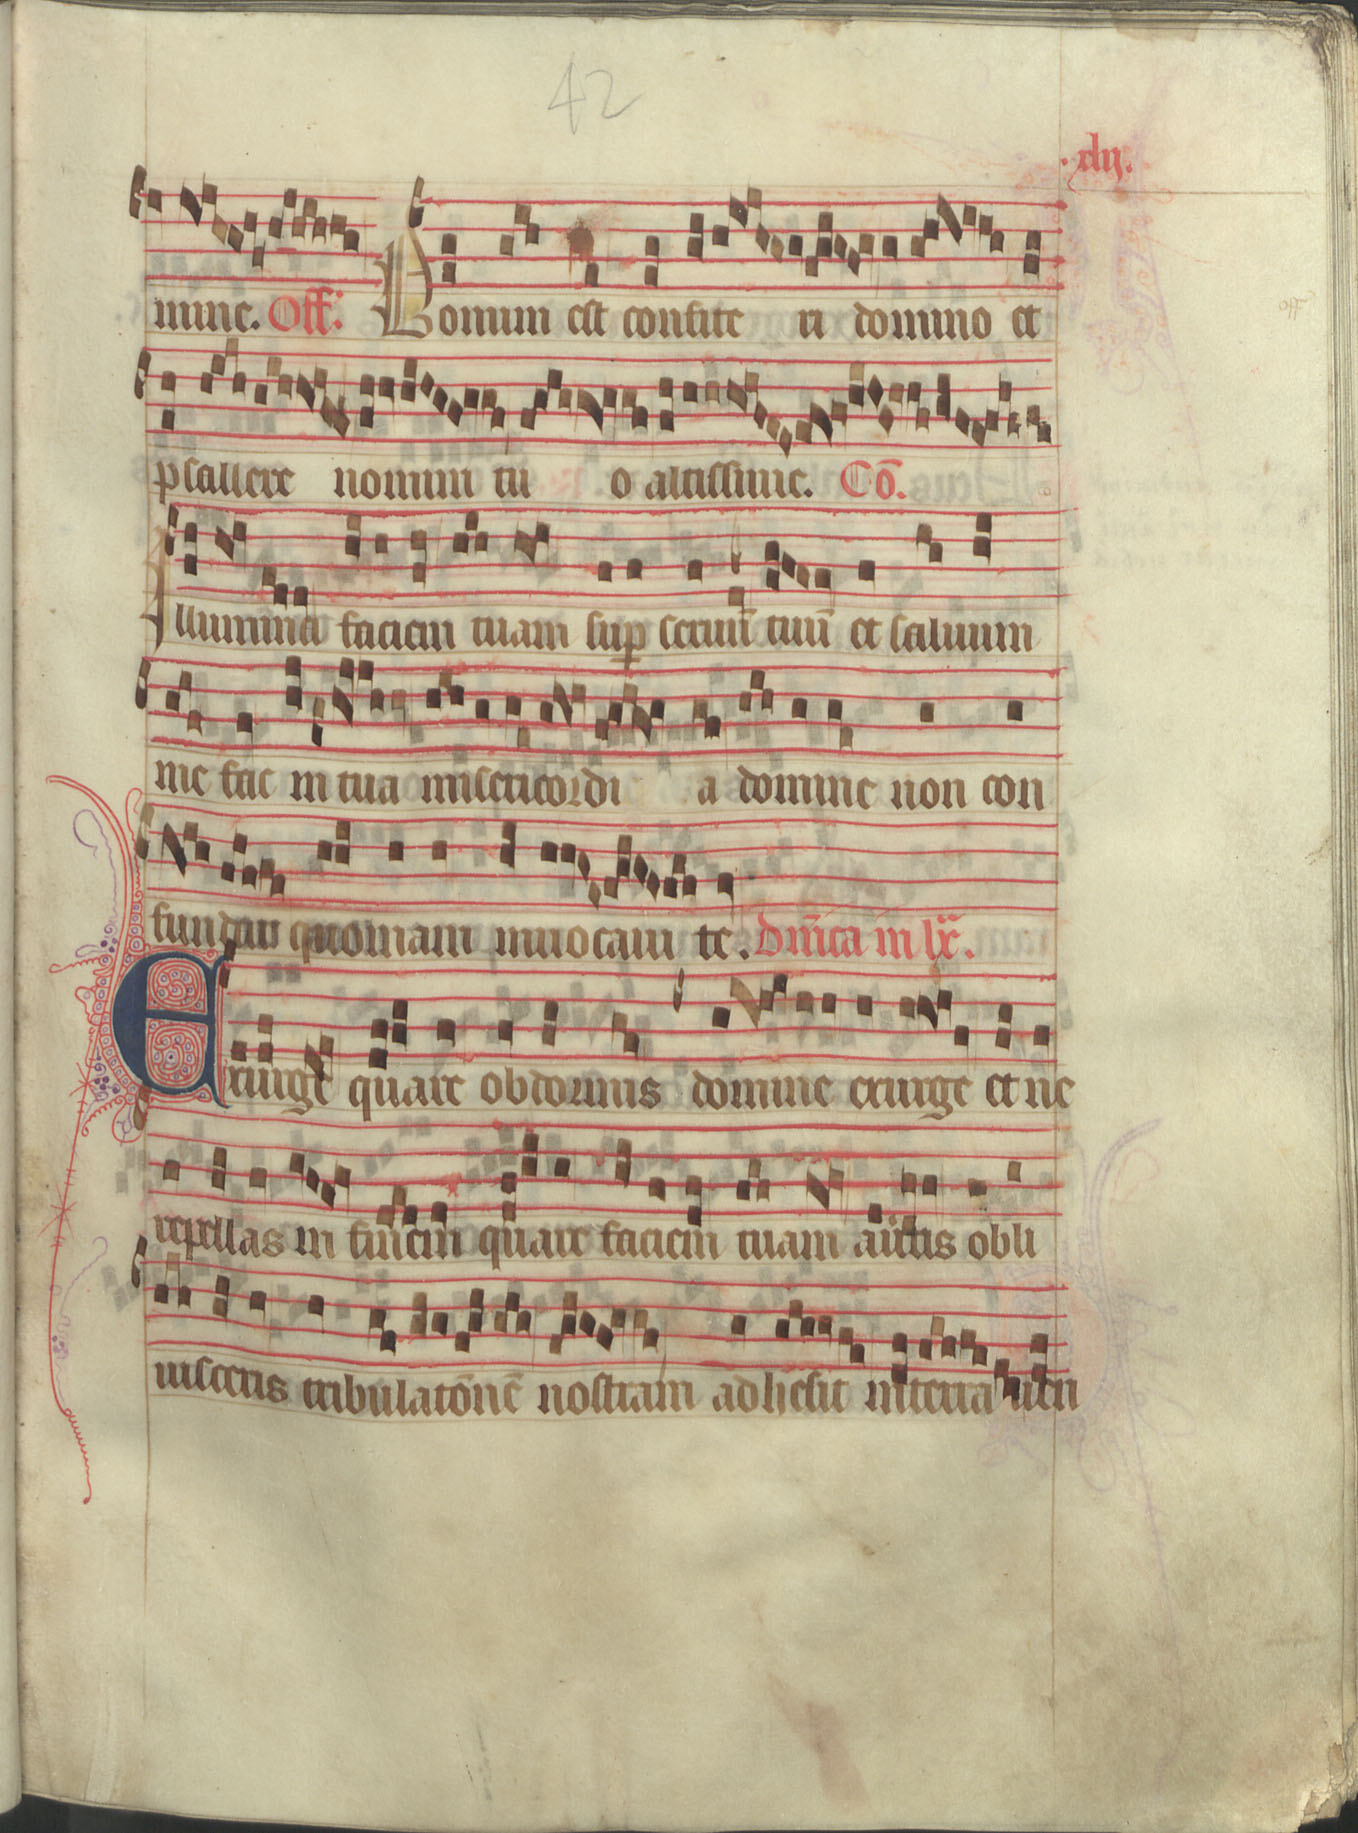 42
.xlij.
mine. Off. Bonum est confite ri domino et
off
psallere nomini tu o altissime. Cō.
Illumina faciem tuam sup seruū tuū et saluum
me fac in tua misericordi a domine non con
fundar quoniam inuocaui te. Dn̄ica in lx̄.
Exurge quare obdormis domine exurge et ne
repellas in finem quare faciem tuam auertis obli
uisceris tribulatōnē nostram adhesit in terra uen